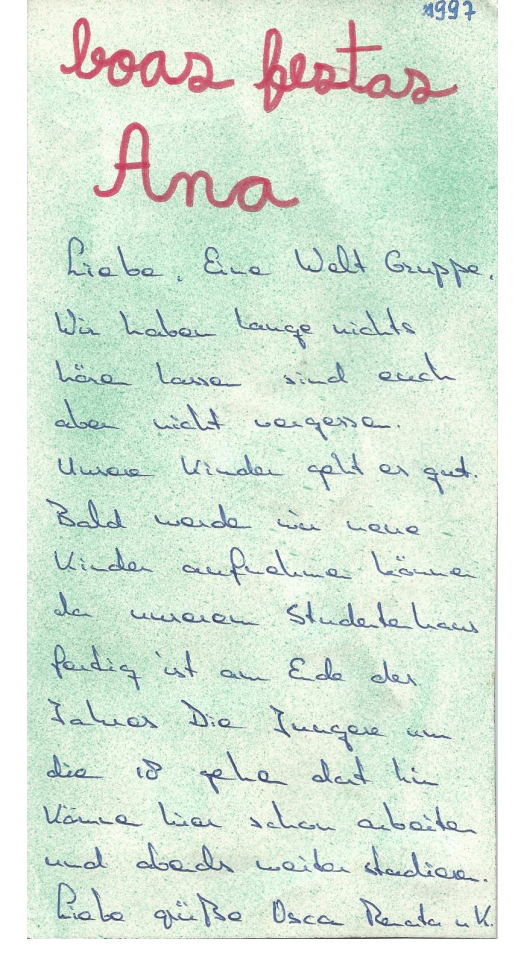 1997
boas festas
Ana
Liebe, Eine Welt Gruppe,
Wir haben lange nichts
höre lassen sind euch
aber nicht vergessen.
Unsere Kinder geht es gut.
Bald werde wir neue
Kinder aufnehme könne
da unserem Studentehaus
fertig ist am Ende des
Jahres Die Jungere um
die 18 gehe dort hin
Könne hier schon arbeiten
und abends weiter studieren.
Liebe grüße Osca Renata u K.